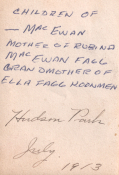 CHILDREN OF
— MAC EWAN
MOTHER OF RUBINA
MAC EWAN FAGG
GRANDMOTHER OF
ELLA FAGG KOONMEN
Hudson Park
July
1913